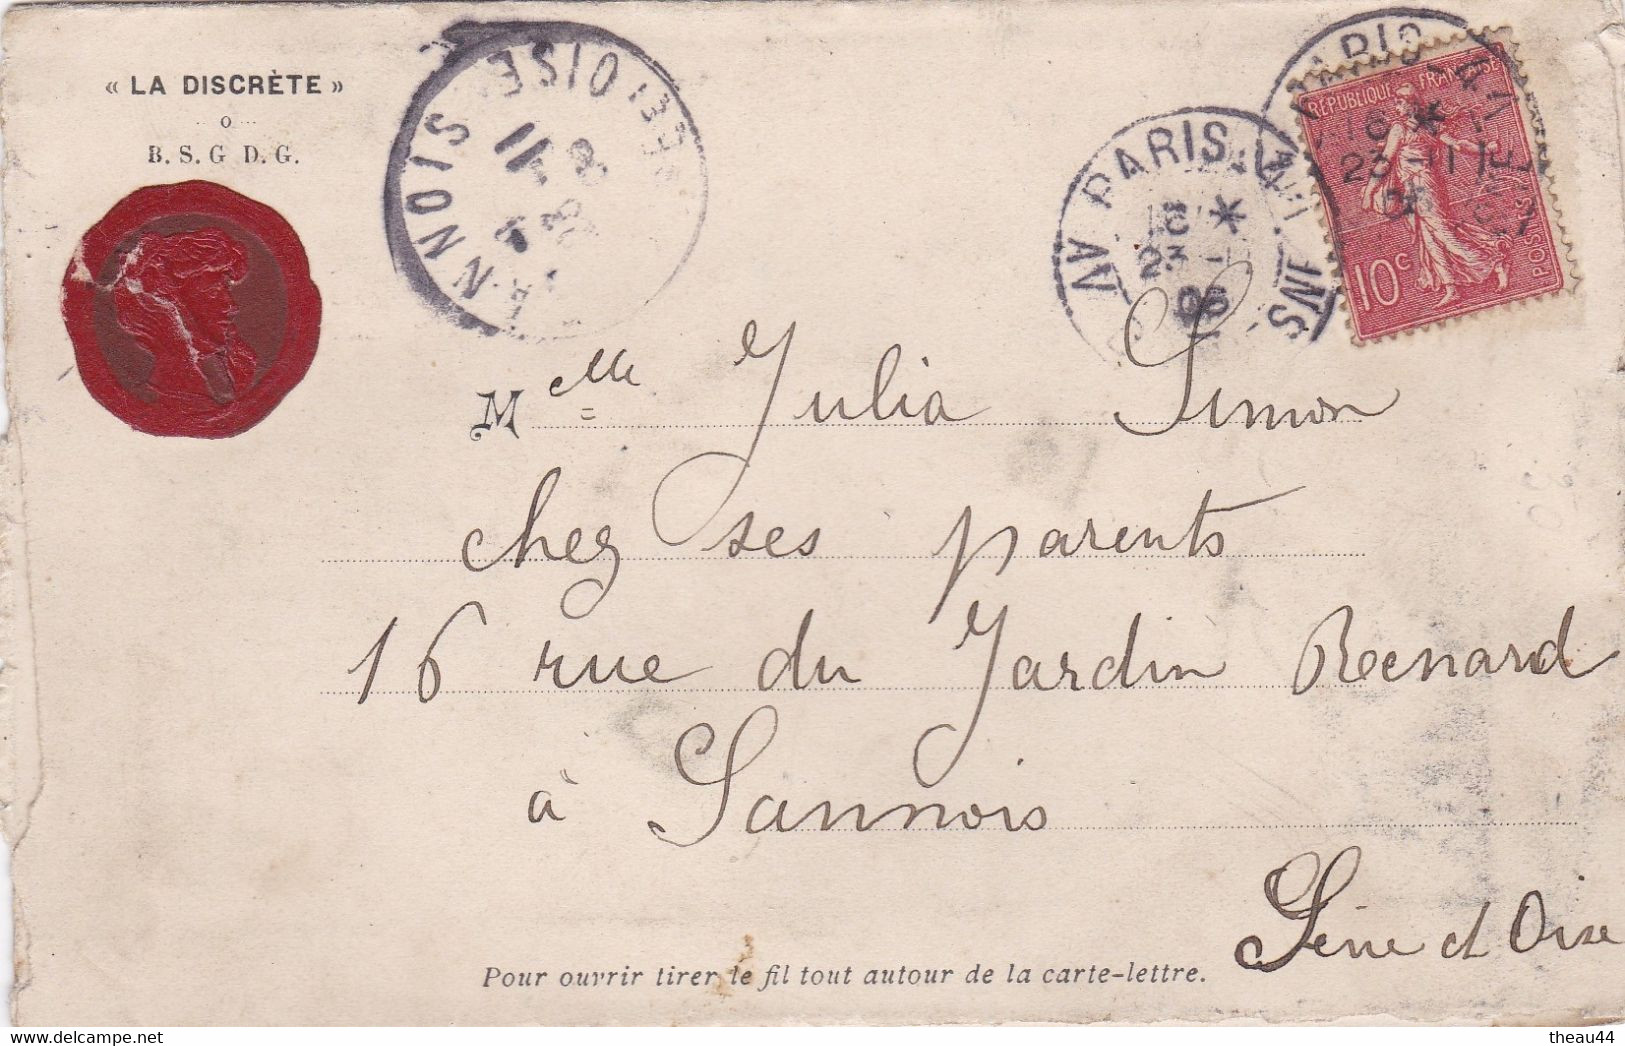 « LA DISCRÈTE »
o
B. S. G D. G.
OISE
11
RÉPUBLIQUE FRANÇAISE
POSTES
10c
PARIS
16 *
23 -11
PARIS
AV
*
23
06
Melle Julia Simon
chez ses parents
16 rue du Jardin Renard
à Sannois
Seine et Oise
Pour ouvrir tirer le fil tout autour de la carte-lettre.
www.delcampe.net
theau44